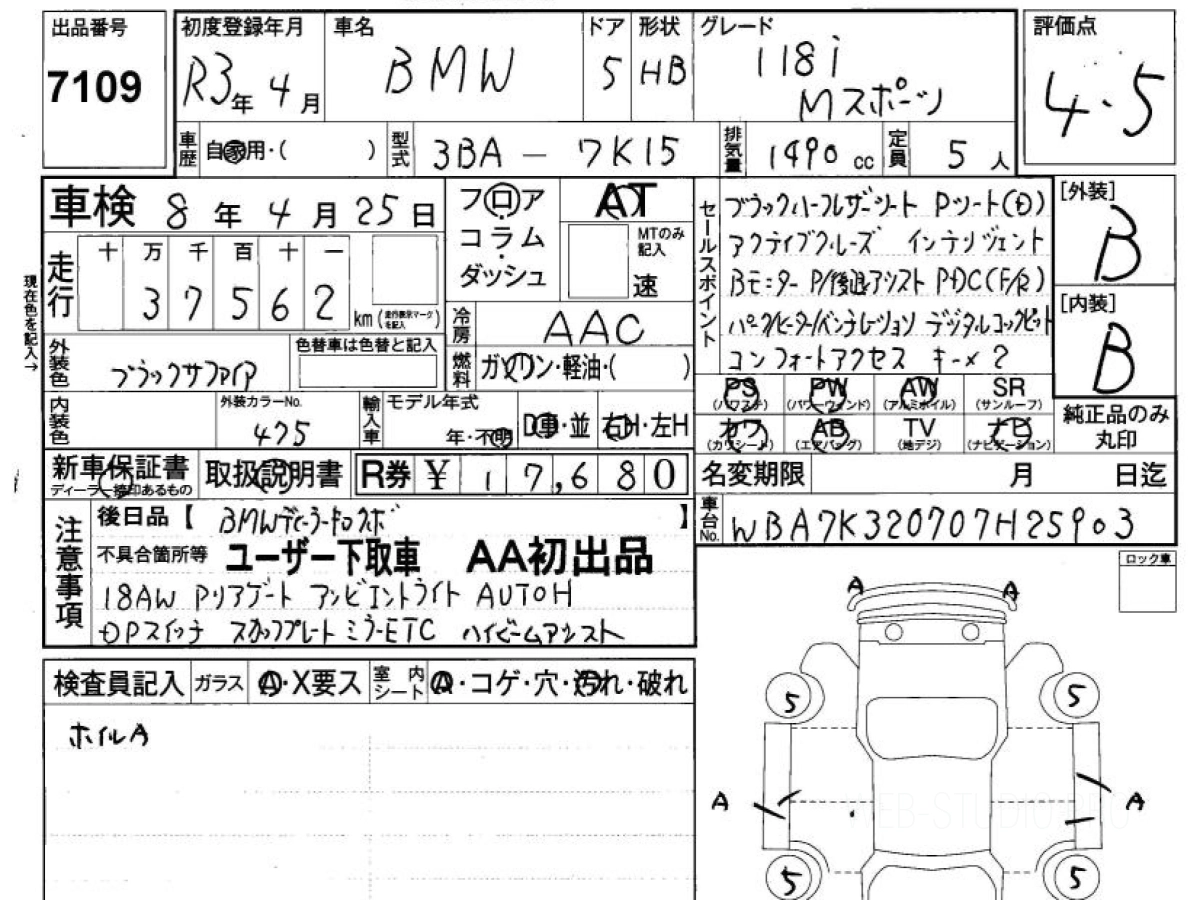 出品番号
7109
初度登録年月
R3年4月
車名
BMW
ドア
5
形状
HB
グレード
118i
Mスポーツ
評価点
4.5
車歴
自家用・( )
型式
3BA-7K15
排気量
1490cc
定員
5人
車検 8年4月25日
走行
十万千百十一
37562
km(走行表示マークを記入)
現在色を記入→
フロア
コラム
ダッシュ
AT
MTのみ記入
速
冷房
AAC
燃料
ガソリン・軽油・( )
外装色
ブラックサファイア
色替車は色替と記入
内装色
外装カラーNo.
475
輸入車
モデル年式
年・不明
D車・並
右H・左H
新車保証書
ディーラー捺印あるもの
取扱説明書
R券 ¥17,680
セールスポイント
ブラックハーフレザーシート Pシート(D)
アクティブクルーズ インテリジェント
Bモニター P/後退アシスト PDC(F/R)
パーク/ヒーター/ベンチレーション デジタルコックピット
コンフォートアクセス キーメ2
PS
(パワステ)
PW
(パワーウィンド)
AW
(アルミホイル)
SR
(サンルーフ)
カワ
(カワシート)
AB
(エアバッグ)
TV
(地デジ)
ナビ
(ナビゲーション)
[外装]
B
[内装]
B
純正品のみ
丸印
名変期限 月 日迄
車台No.
WBA7K320707H25903
注意事項
後日品【 】
不具合箇所等
ユーザー下取車 AA初出品
18AW Pリアゲート アンビエントライト AUTOH
DPスイッチ スカッフプレート ミラーETC ハイビームアシスト
検査員記入
ガラス
A・X要ス
室内シート
A・コゲ・穴・汚れ・破れ
ホイルA
ロック車
A
A
5
5
A
A
5
5
WEB-STUDIO.PRO